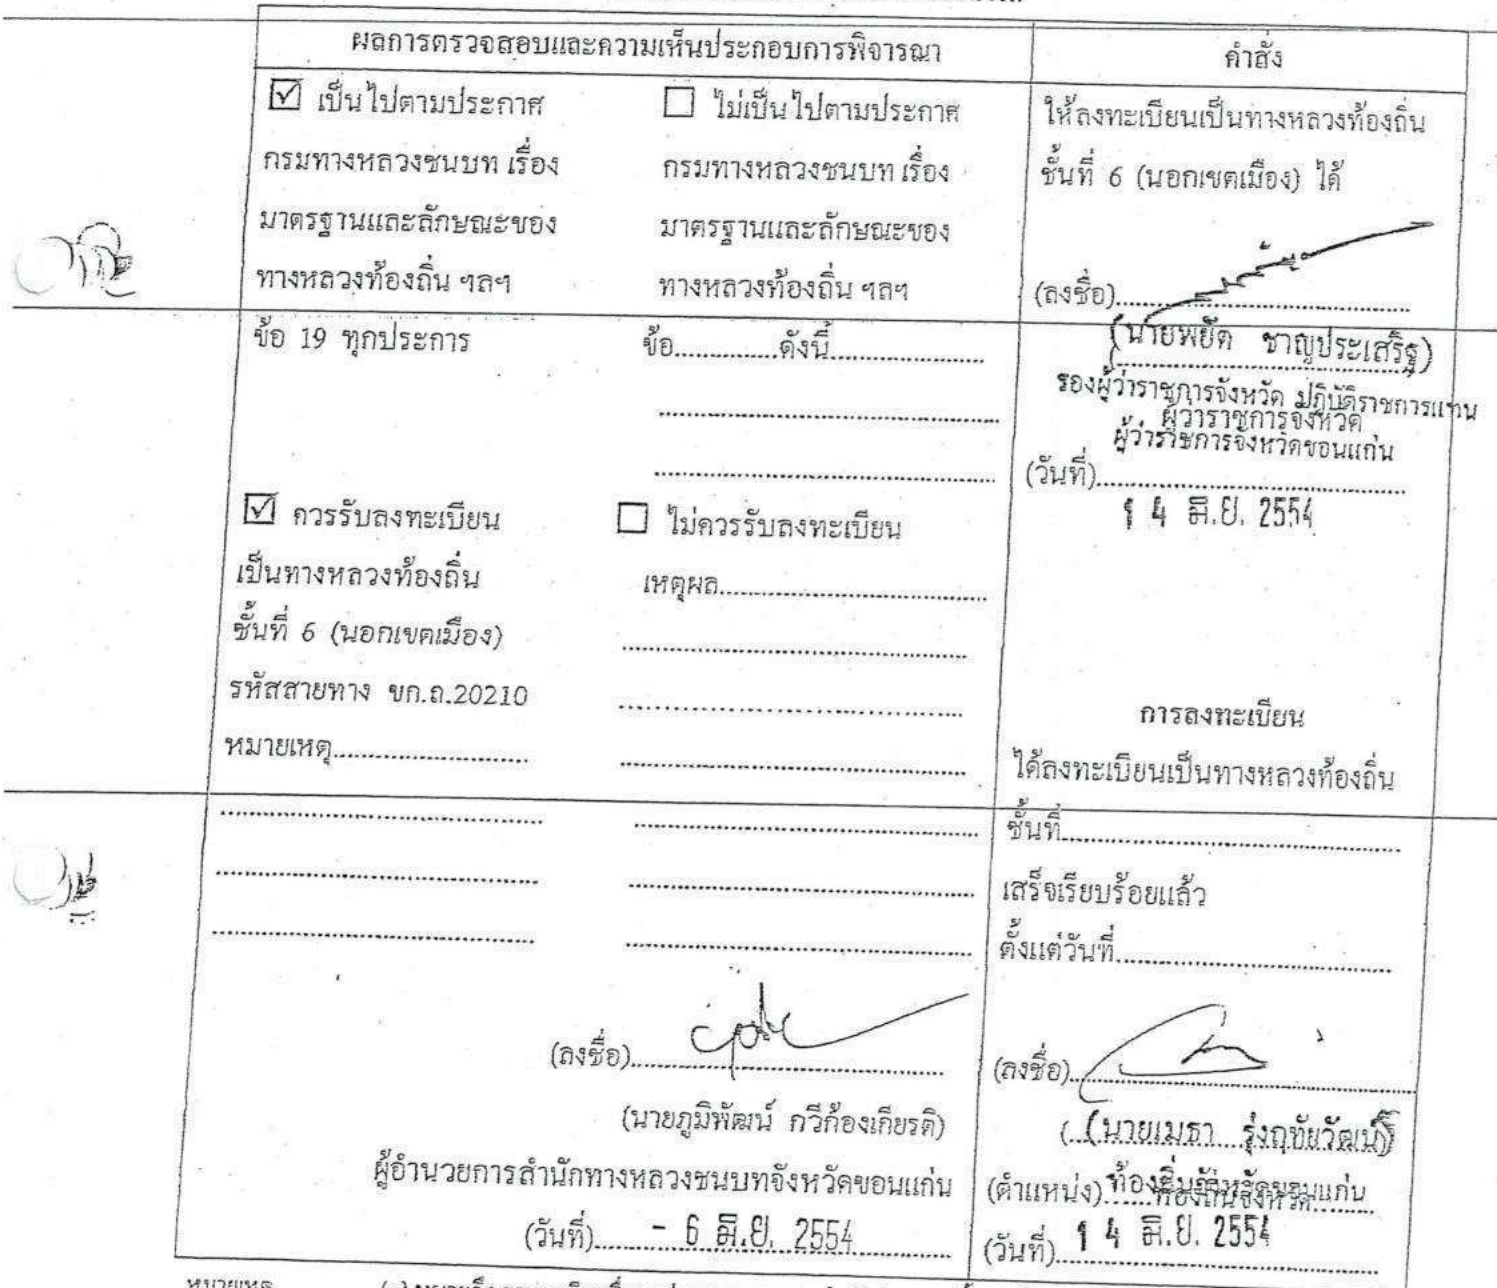 ผลการตรวจสอบและความเห็นประกอบการพิจารณา
☑ เป็นไปตามประกาศ
กรมทางหลวงชนบท เรื่อง
มาตรฐานและลักษณะของ
ทางหลวงท้องถิ่น ฯลฯ
ข้อ 19 ทุกประการ
☐ ไม่เป็นไปตามประกาศ
กรมทางหลวงชนบท เรื่อง
มาตรฐานและลักษณะของ
ทางหลวงท้องถิ่น ฯลฯ
ข้อ..............ดังนี้......................
☑ ควรรับลงทะเบียน
เป็นทางหลวงท้องถิ่น
ชั้นที่ 6 (นอกเขตเมือง)
รหัสสายทาง ขก.ถ.20210
หมายเหตุ............................
☐ ไม่ควรรับลงทะเบียน
เหตุผล......................................
(ลงชื่อ)............................................
(นายภูมิพัฒน์ กวีก้องเกียรติ)
ผู้อำนวยการสำนักทางหลวงชนบทจังหวัดขอนแก่น
(วันที่)........- 6 มิ.ย. 2554..............
คำสั่ง
ให้ลงทะเบียนเป็นทางหลวงท้องถิ่น
ชั้นที่ 6 (นอกเขตเมือง) ได้
(ลงชื่อ)..........................................
(นายพยัต ชาญประเสริฐ)
รองผู้ว่าราชการจังหวัด ปฏิบัติราชการแทน
ผู้ว่าราชการจังหวัด
ผู้ว่าราชการจังหวัดขอนแก่น
(วันที่)............................................
1 4 มิ.ย. 2554
การลงทะเบียน
ได้ลงทะเบียนเป็นทางหลวงท้องถิ่น
ชั้นที่................................................
เสร็จเรียบร้อยแล้ว
ตั้งแต่วันที่.......................................
(ลงชื่อ)................................................
(นายเมธา รุ่งฤทัยวัฒน์)
(ตำแหน่ง) ท้องถิ่นจังหวัดขอนแก่น
ท้องถิ่นจังหวัด
(วันที่) 1 4 มิ.ย. 2554
หมายเหตุ